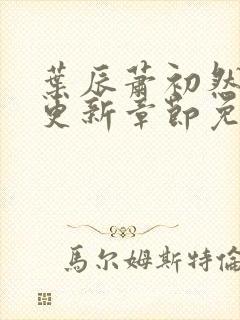 葉辰蕭初然
更新章節免
馬尔姆斯特倫